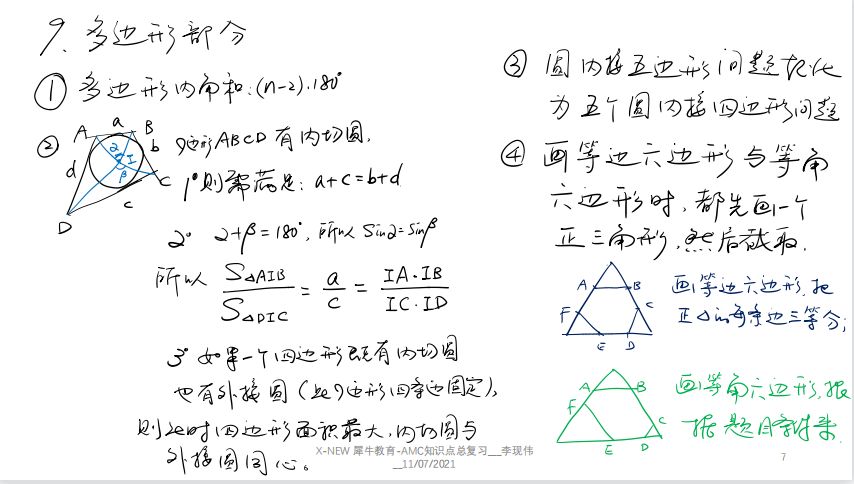 9、多边形部分
① 多边形内角和:(n-2)·180°
② A a B 四边形ABCD 有内切圆,
d α I b
β
D c C
1° 则需满足: a+c=b+d
2° α+β=180°, 所以 Sinα=Sinβ
所以 S△AIB / S△DIC = a / c = IA·IB / IC·ID
3° 如果一个四边形既有内切圆
也有外接圆(此四边形四条边固定),
则此时四边形面积最大,内切圆与
外接圆同心。
③ 圆内接五边形问题转化
为五个圆内接四边形问题
④ 画等边六边形与等角
六边形时,都先画一个
正三角形,然后截取.
A B C D E F
画等边六边形,把
正△的每条边三等分;
A B C D E F
画等角六边形,根
据题目条件来.
X-NEW 犀牛教育-AMC知识点总复习__李现伟
__11/07/2021
7